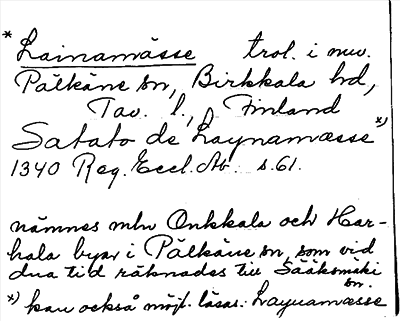 * Lainamässe trol. i nuv.
Pälkäne sn, Birkkala hd,
Tav. l., Finland
Sabato de Laynamæsse *)
1340 Reg. Eccl. Ab. s. 61.
nämnes mhn Onkkala och Har-
hala byar i Pälkäne sn, som vid
dna tid räknades till Sääksmäki
sn.
*) kan också möjl. läsas: Layuamæsse